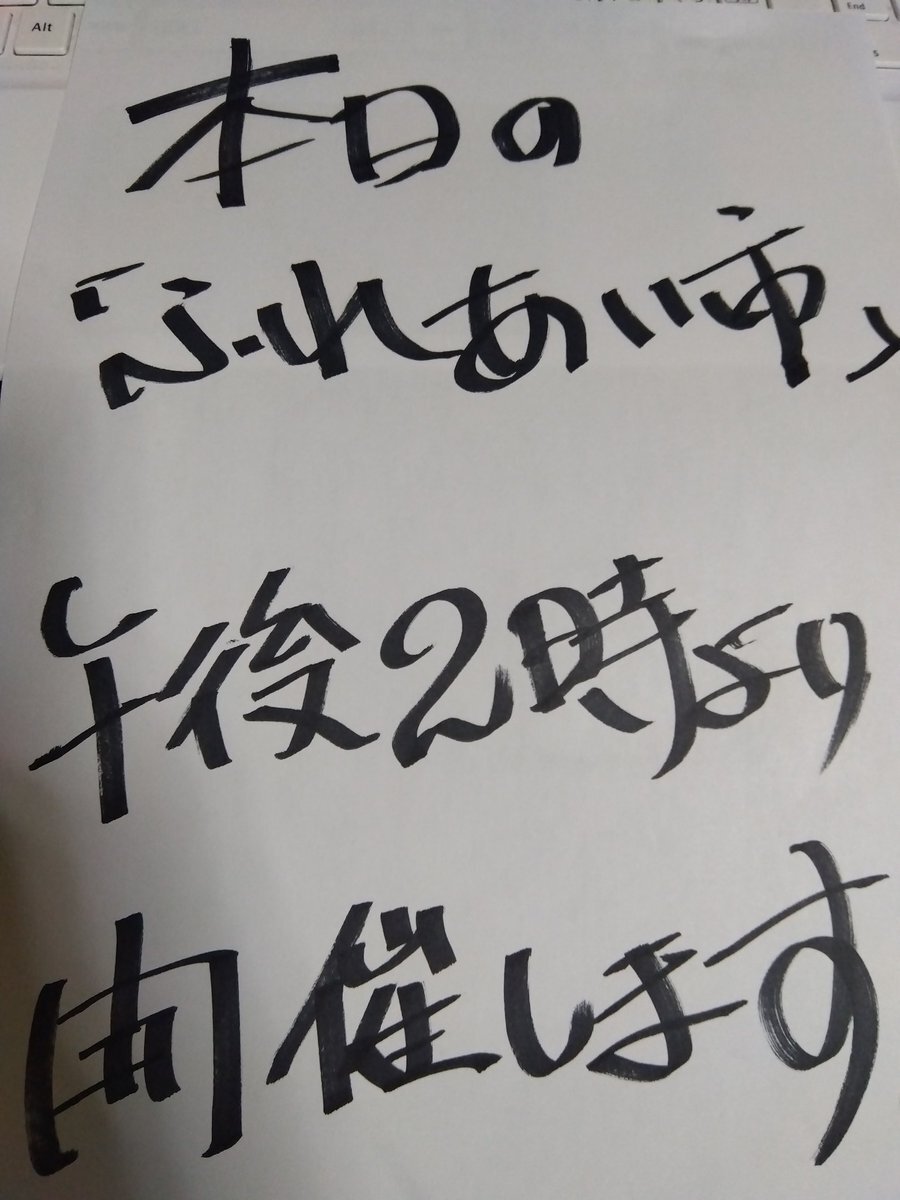 Alt
End
本日の
「ふれあい市」
午後2時より
開催します